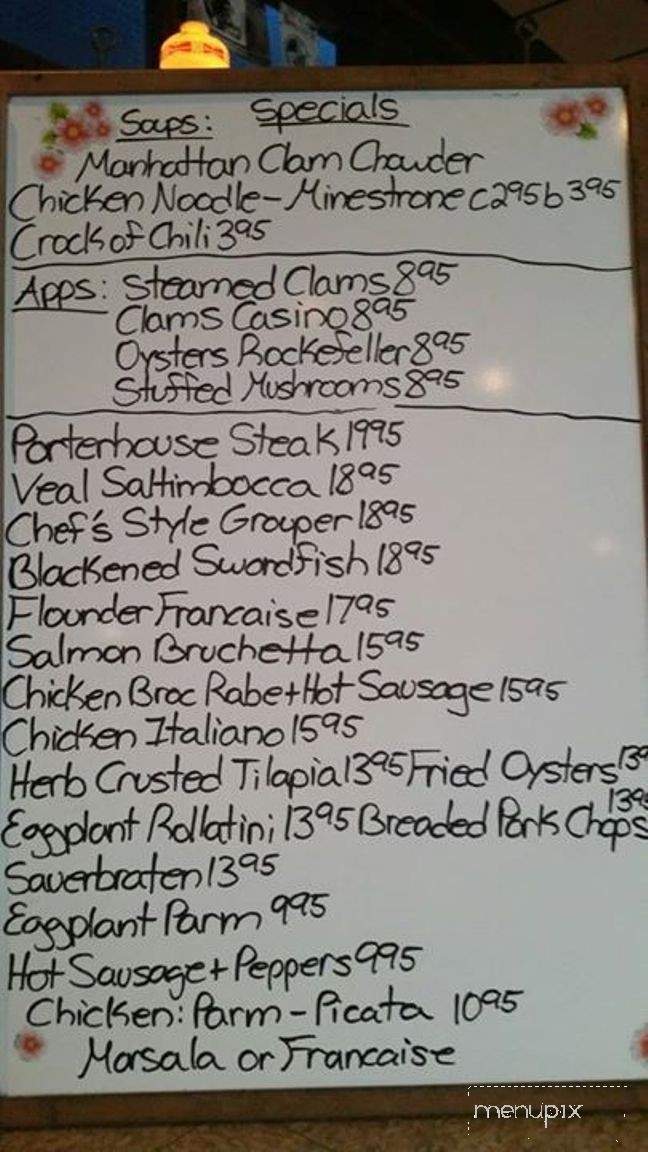 Specials
Soups:
Manhattan Clam Chowder
Chicken Noodle - Minestrone c295 b395
Crock of Chili 395
Apps: Steamed Clams 895
Clams Casino 895
Oysters Rockefeller 895
Stuffed Mushrooms 895
Porterhouse Steak 1995
Veal Saltimbocca 1895
Chef's Style Grouper 1895
Blackened Swordfish 1895
Flounder Francaise 1795
Salmon Bruchetta 1595
Chicken Broc Rabe + Hot Sausage 1595
Chicken Italiano 1595
Herb Crusted Tilapia 1395 Fried Oysters 139
Eggplant Rollatini 1395 Breaded Pork Chops 1395
Sauerbraten 1395
Eggplant Parm 995
Hot Sausage + Peppers 995
Chicken: Parm - Picata 1095
Marsala or Francaise
menupix